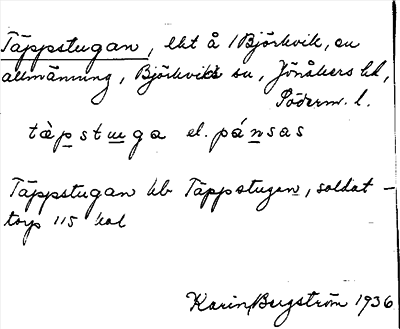 Täppstugan, lht å 1 Björkvik, en
allmänning, Björkviks sn, Jönåkers hd,
Söderm. l.
tàpstuga el. pánsas
Täppstugan hb Täppstugan, soldat-
torp 115 kal
Karin Bergström 1936